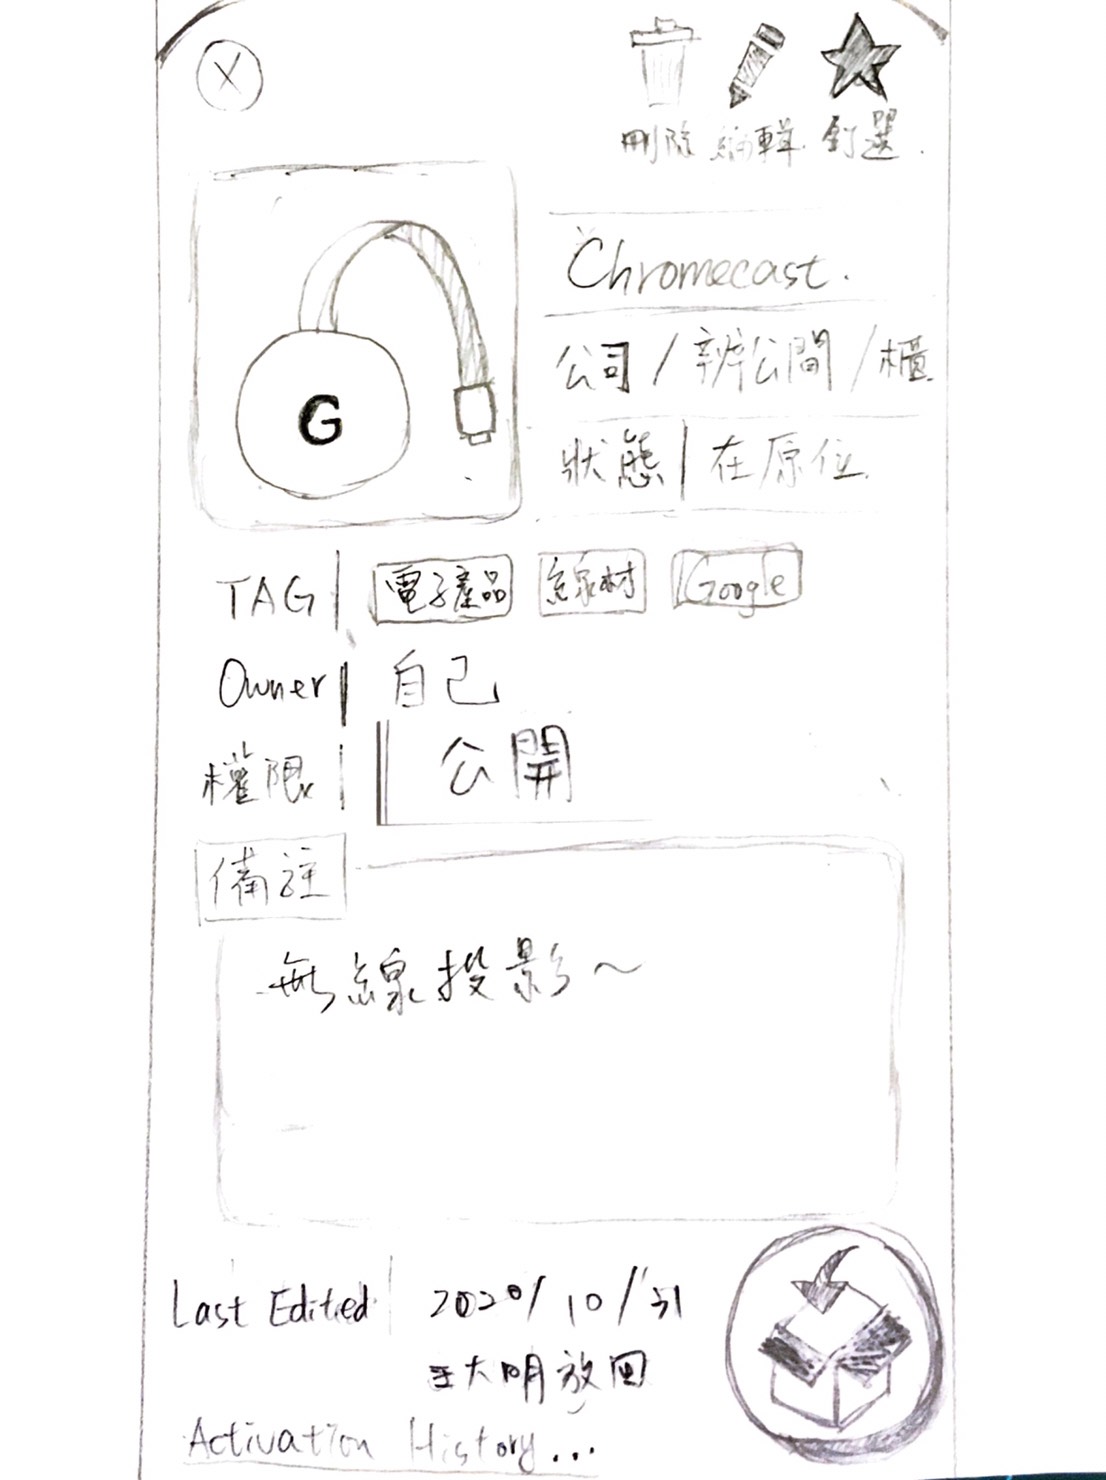 X
刪除 編輯 釘選
Chromecast.
公司 / 辦公間 / 櫃
G
狀態 | 在原位
TAG | 電子產品 線材 Google
Owner | 自己
權限 | 公開
備註
無線投影~
Last Edited 2020/10/31
王大明放回
Activation History...